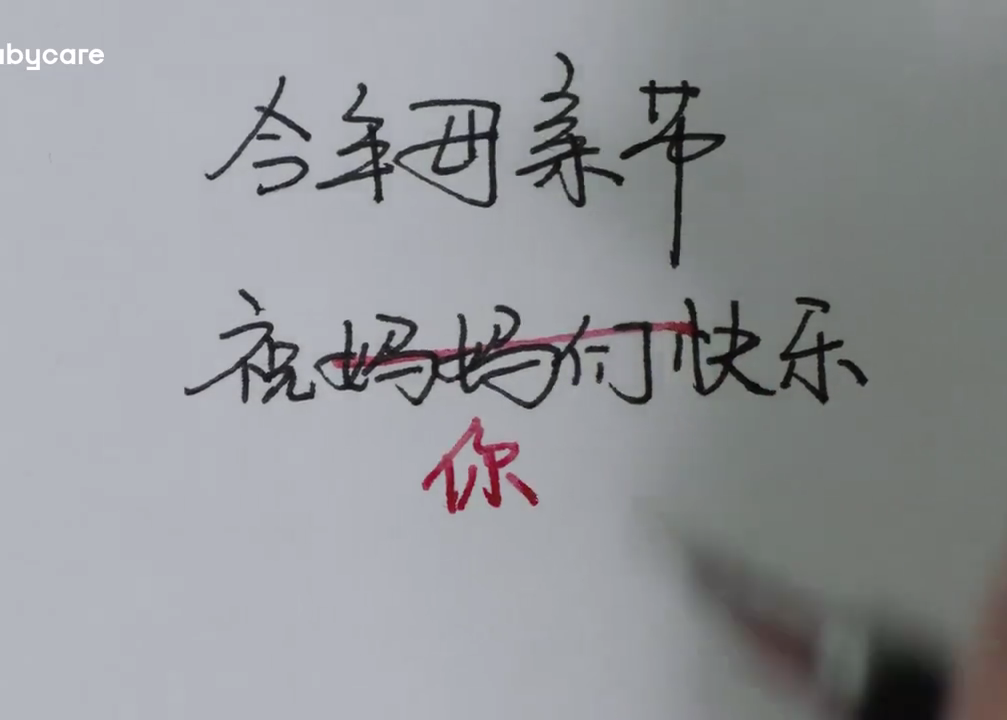 abycare
今年母亲节
祝妈妈们快乐
你